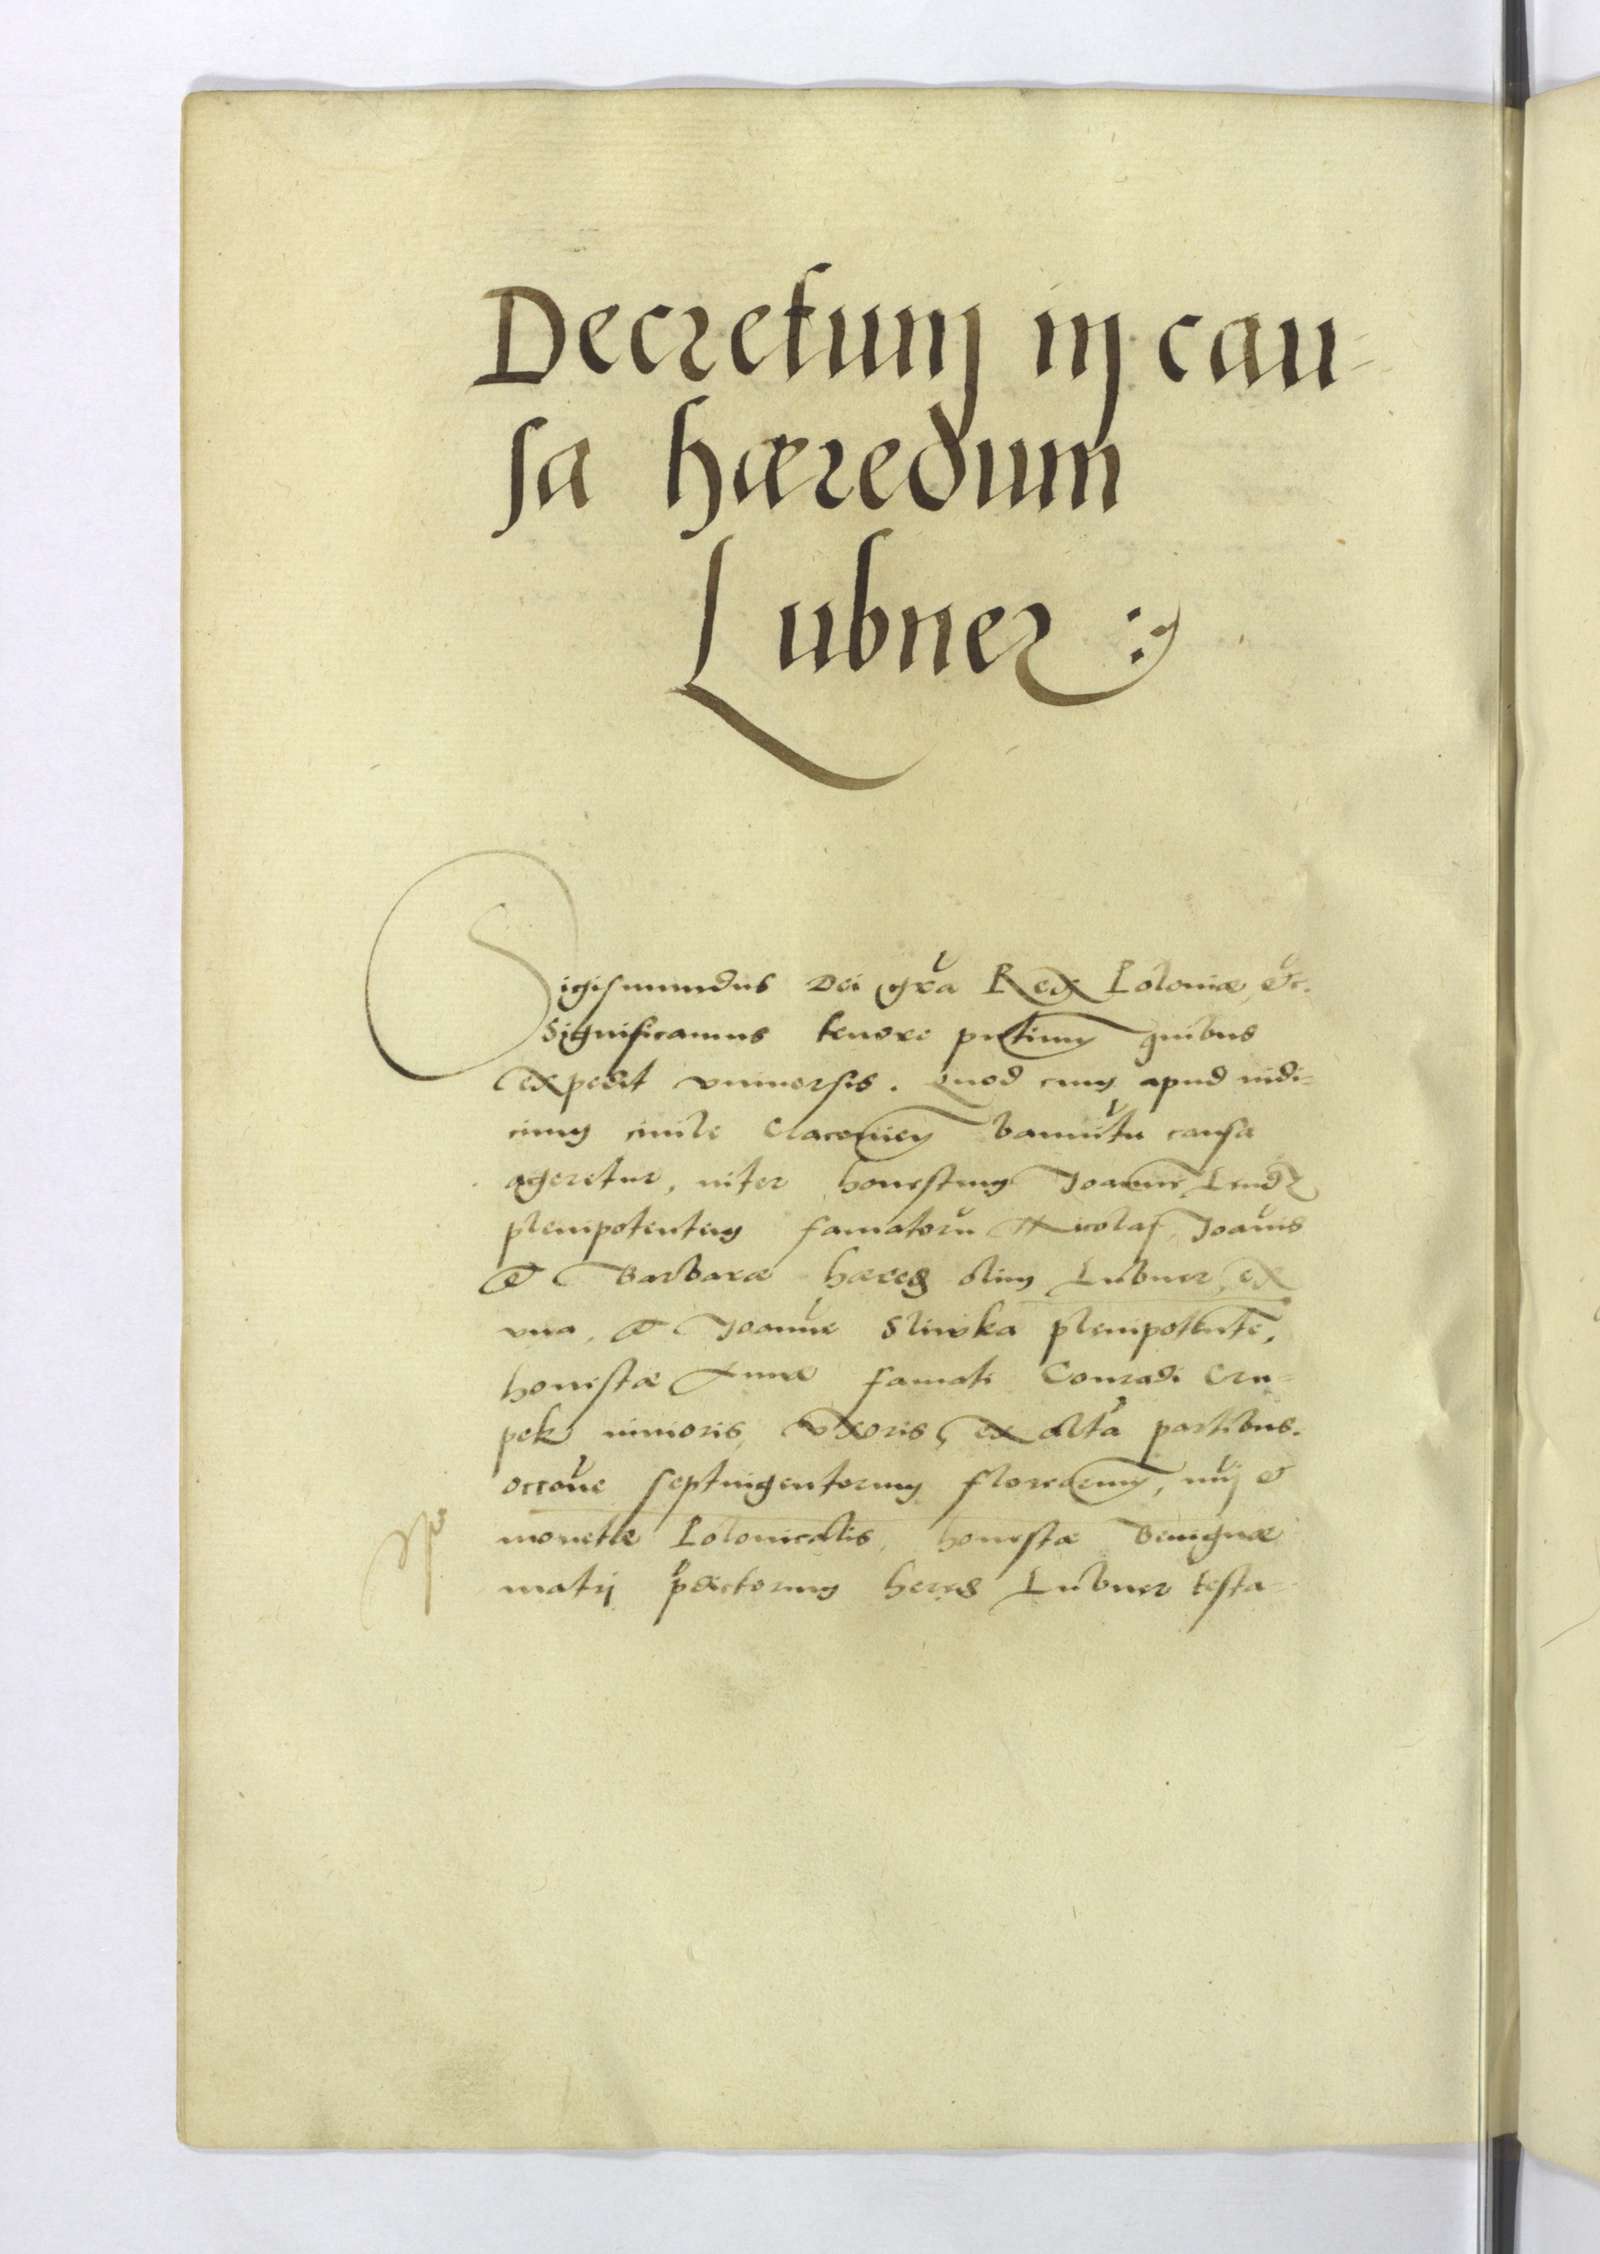 Decretum in cau-
sa hæredum
Lubner :
Sigismundus Dei gra Rex Poloniæ, &c.
Significamus tenore pntium quibus
expedit vniuersis. Quod cum apud iudi-
cium ciuile bannitu causa
ageretur, inter honestum Joanne
plenipotentem famatoru Nicolai, Joanis
& Barbaræ hæred olim Lubner, ex
vna, & Joanne Sliwka plenipotente,
honestæ Annæ famati Conradi Cru-
pek iunioris, vxoris, ex alta partibus.
occone septingentorum florenorum, &
monetæ Polonicalis, honestæ Benignæ
matri pdictorum hered Lubner testa-